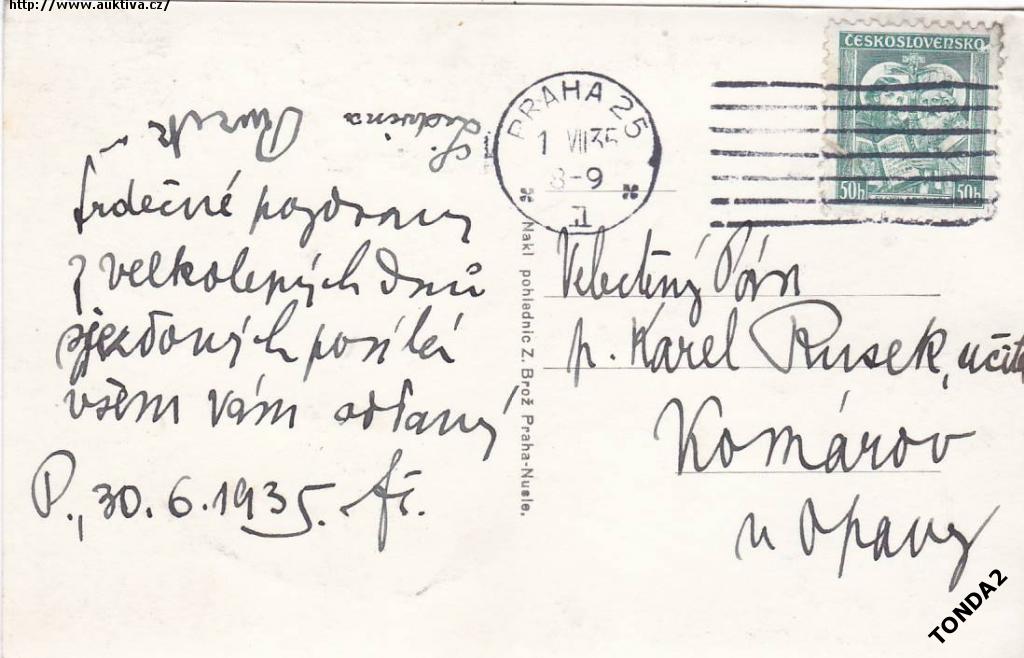 http://www.auktiva.cz/
ČESKOSLOVENSKO
50h 50h
PRAHA 25
1 VII 35
8-9
1
Ludvina
Srdečné pozdravy
z velkolepých dnů
sjezdových posílá
všem vám oddaný
P., 30.6.1935.
Nakl pohlednic Z. Brož Praha-Nusle.
Velectěný Pán
p. Karel Rusek, učit
Komárov
u Opavy
TONDA2